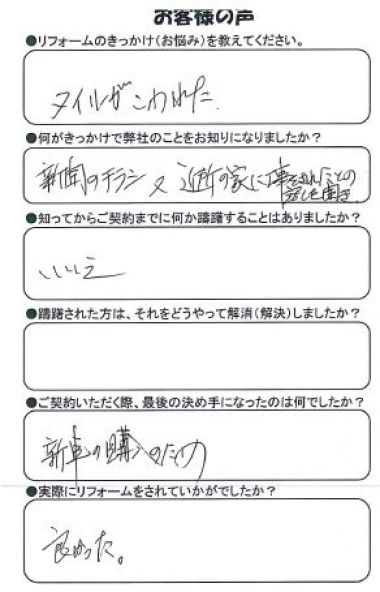 お客様の声
●リフォームのきっかけ(お悩み)を教えてください。
タイルがこわれた.
●何がきっかけで弊社のことをお知りになりましたか?
新聞のチラシ 又 近所の家に事をされたことの
話しを聞き.
●知ってからご契約までに何か躊躇することはありましたか?
いいえ
●躊躇された方は、それをどうやって解消(解決)しましたか?
●ご契約いただく際、最後の決め手になったのは何でしたか?
新車の購入のため
●実際にリフォームをされていかがでしたか?
良かった。